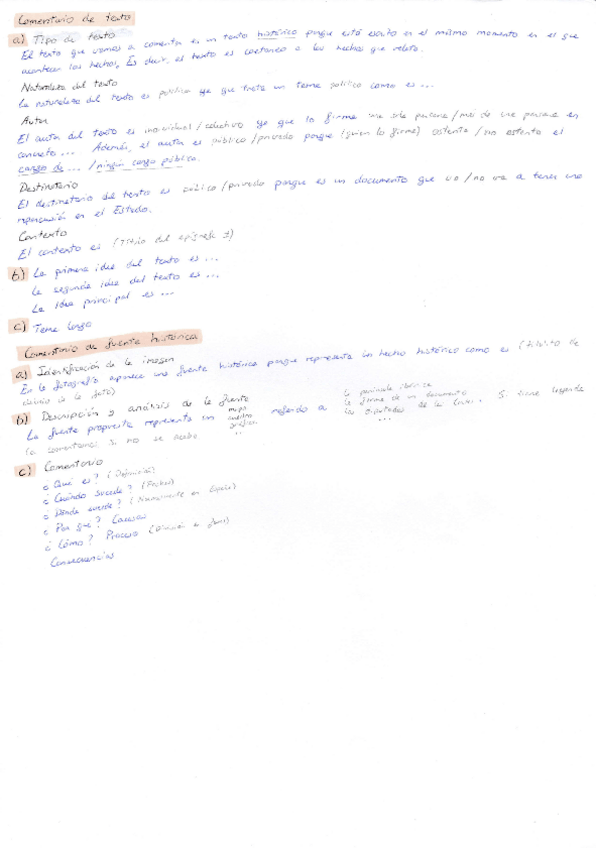 Comentario de texto
a) Tipo de texto
El texto que vamos a comentar es un texto histórico porque está escrito en el mismo momento en el que
acontecen los hechos, Es decir, el texto es coetáneo a los hechos que relata.
Naturaleza del texto
La naturaleza del texto es política ya que trata un tema político como es ...
Autor
El autor del texto es individual / colectivo ya que lo firma una sola persona / más de una persona en
concreto ... Además, el autor es público / privado porque (quien lo firma) ostenta / no ostenta el
cargo de ... / ningún cargo público.
Destinatario
El destinatario del texto es público / privado porque es un documento que va / no va a tener una
repercusión en el Estado.
Contexto
El contexto es (Título del epígrafe 1)
b) La primera idea del texto es ...
La segunda idea del texto es ...
La idea principal es ...
c) Tema largo
Comentario de fuente histórica
a) Identificación de la imagen
En la fotografía aparece una fuente histórica porque representa un hecho histórico como es (
de la foto)
b) Descripción y análisis de la fuente
La fuente propuesta representa un mapa cuadro gráfico ... referido a la península ibérica la firma de un documento los diputados de las Cortes ... . Si tiene leyenda
la comentamos. Si no se acaba
c) Comentario
¿Qué es? (Definición)
¿Cuándo sucede? (Fechas)
¿Dónde sucede? (Normalmente en España)
¿Por qué? Causas
¿Cómo? Proceso (División en fases)
Consecuencias